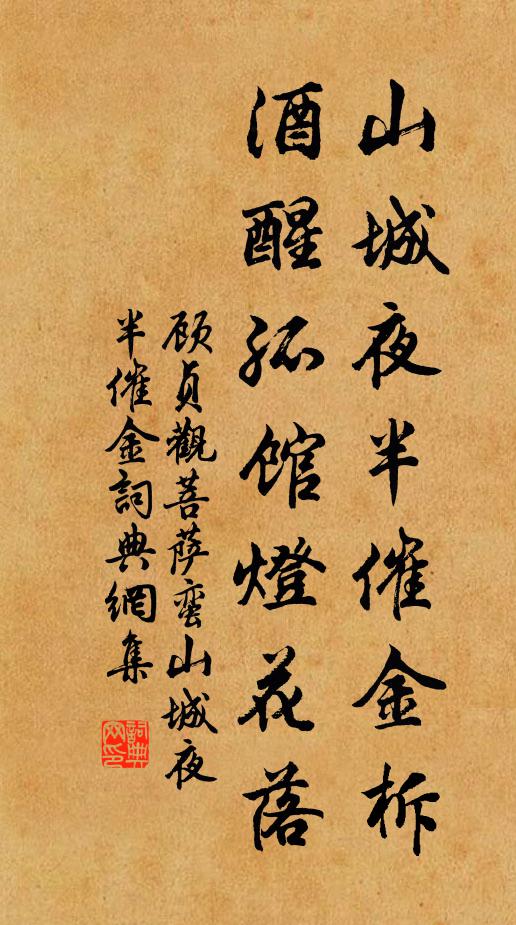 山城夜半催金柝
酒醒孤馆燈花落
顾貞觀菩萨蛮山城夜
半催金詞典網集
詞典
网印